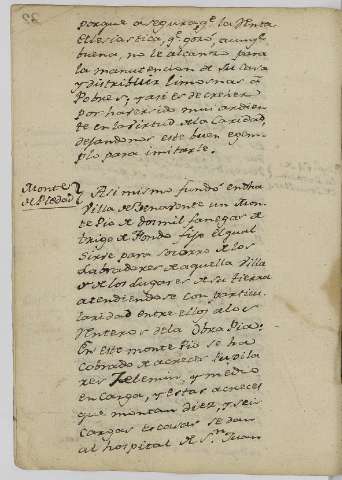 porque asegura, qe. la Renta
Eclesiastica, qe. gozó, aunqe.
buena, no le alcanzó para
la manutencion de su Casa
y distribuir limosnas a
Pobres, y asi es de creher
por haver sido mui ardien
te en la Virtud de la Caridad,
dejandonos este buen egem-
plo para imitarle.
Monte
de Piedad
Asi mismo fundó en dha
Villa de Benavente un Mon
te Pio de dos mil fanegas de
trigo de fondo fijo el qual
sirve para socorro de los
Labradores de aquella Villa
y de los Lugares de su tierra
atendiendose con particu
laridad entre ellos a los
Renteros de la Obra Pia.
En este monte Pio se ha
cobrado de acreces
res Zelemin, y medio
en carga, y estas acreces
que montan diez, y seis
cargas escasas se dan
al hospital de Sn. Juan